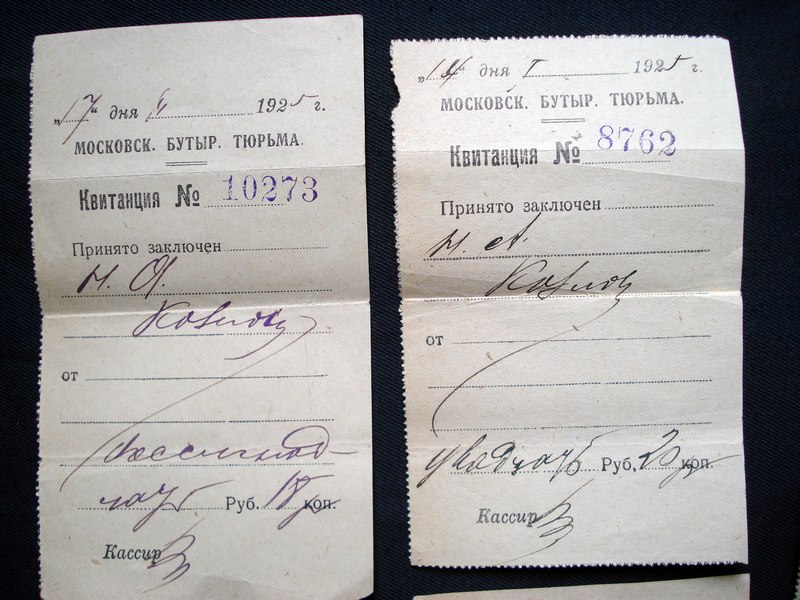 „17“ дня II 1925 г.
МОСКОВСК. БУТЫР. ТЮРЬМА.
Квитанция № 10273
Принято заключен
от
Руб. 18 коп.
Кассир
„14“ дня I 1925 г.
МОСКОВСК. БУТЫР. ТЮРЬМА.
Квитанция № 8762
Принято заключен
Н. А.
от
двадцать Руб. 20 коп.
Кассир